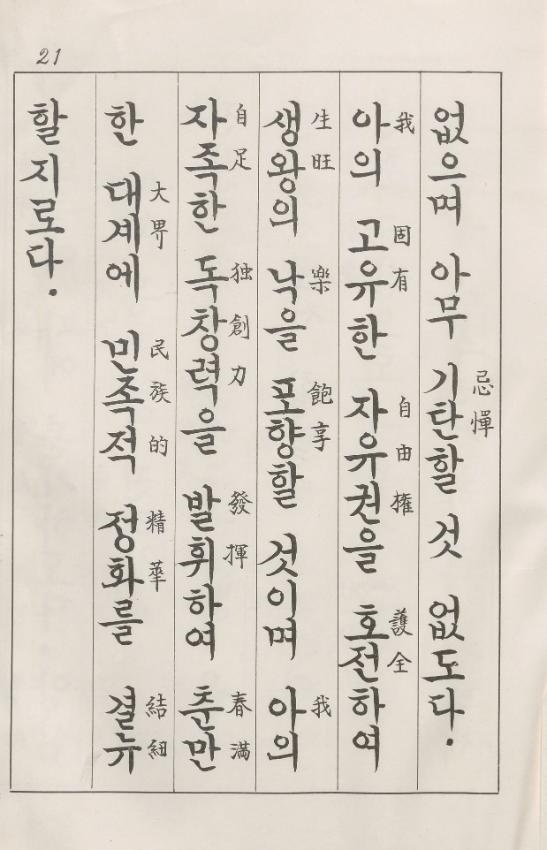 21
없으며 아무 기탄할 것 없도다.
忌憚
아의 고유한 자유권을 호전하여
我 固有 自由權 護全
생왕의 낙을 포향할 것이며 아의
生旺 樂 飽享 我
자족한 독창력을 발휘하여 춘만
自足 独創力 發揮 春滿
한 대계에 민족적 정화를 결뉴
大界 民族的 精華 結紐
할지로다.